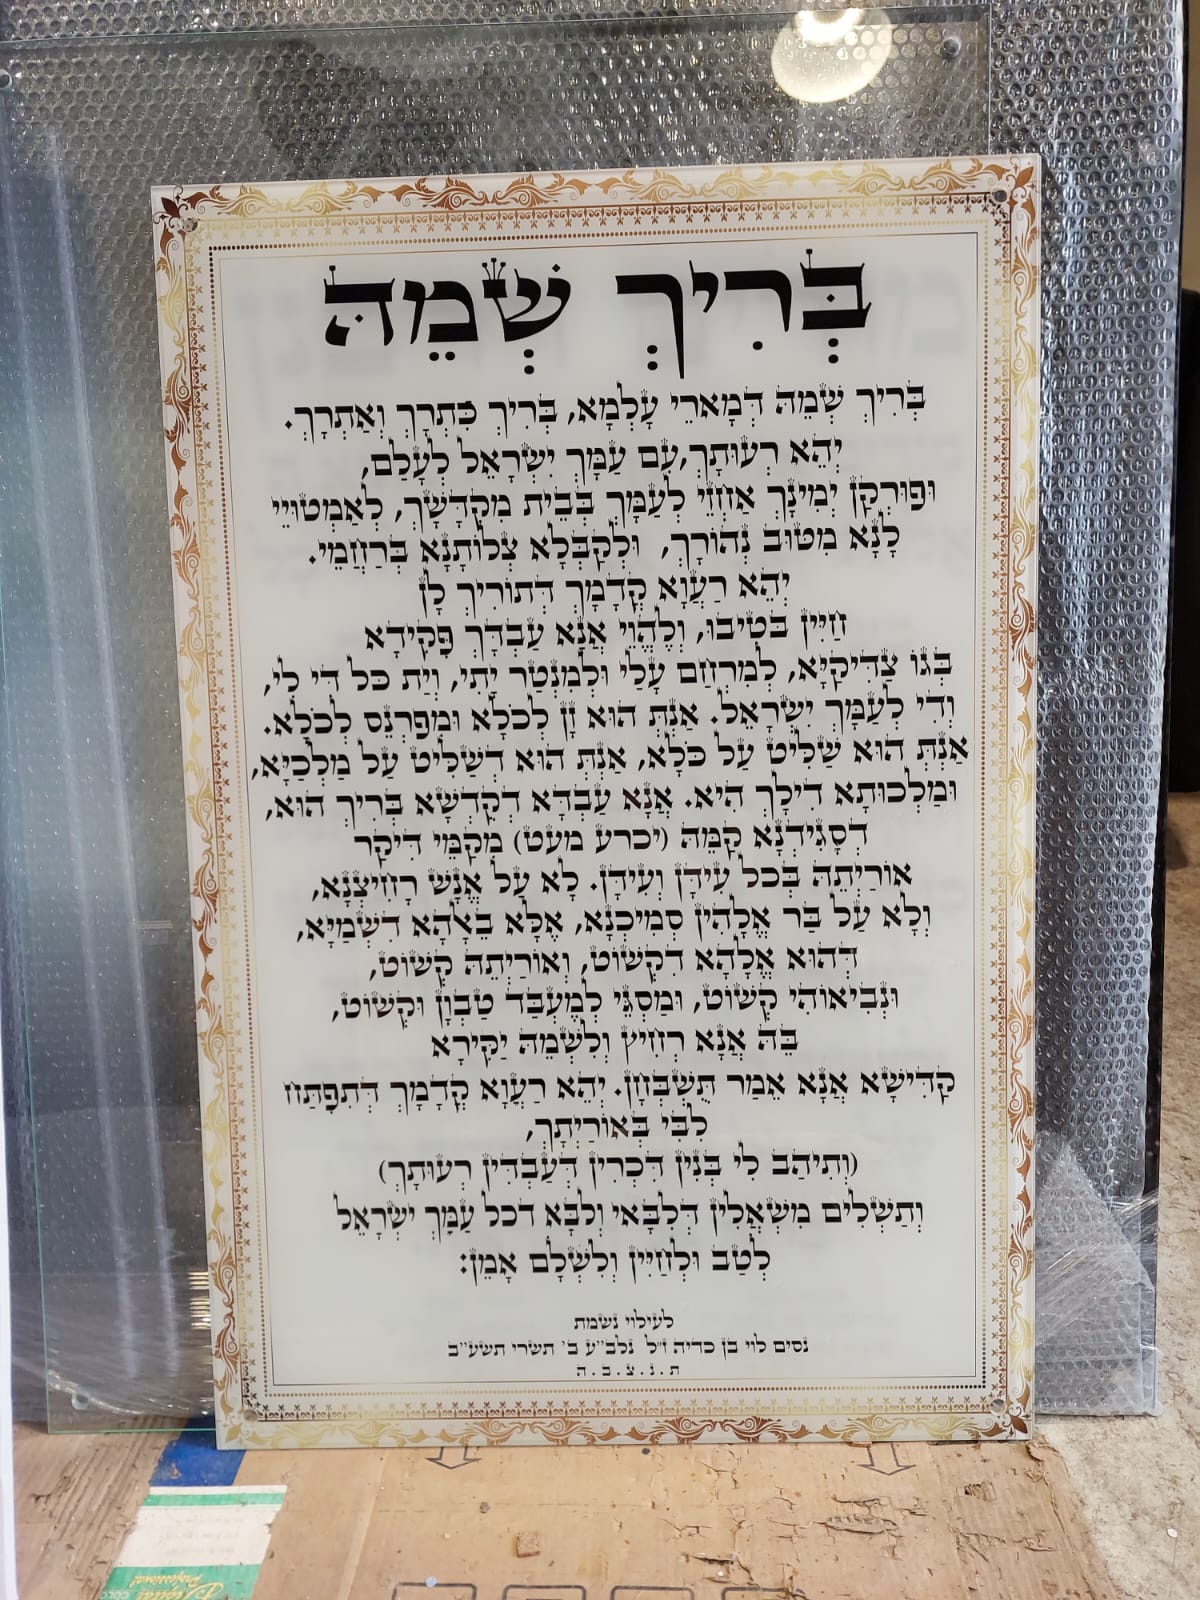 בְּרִיךְ שְׁמֵהּ
בְּרִיךְ שְׁמֵהּ דְּמָארֵי עָלְמָא, בְּרִיךְ כִּתְרָךְ וְאַתְרָךְ.
יְהֵא רְעוּתָךְ,עִם עַמָּךְ יִשְׂרָאֵל לְעָלַם,
וּפוּרְקַן יְמִינָךְ אַחְזֵי לְעַמָּךְ בְּבֵית מִקְדָּשָׁךְ, לְאַמְטוּיֵי
לָנָא מִטּוּב נְהוֹרָךְ, וּלְקַבְּלָא צְלוֹתָנָא בְּרַחֲמֵי.
יְהֵא רַעֲוָא קֳדָמָךְ דְּתוֹרִיךְ לָן
חַיִּין בְּטִיבוּ, וְלֶהֱוֵי אֲנָא עַבְדָּךְ פְּקִידָא
בְּגוֹ צַדִּיקַיָּא, לְמִרְחַם עָלַי וּלְמִנְטַר יָתִי, וְיַת כָּל דִּי לִי,
וְדִי לְעַמָּךְ יִשְׂרָאֵל. אַנְתְּ הוּא זָן לְכֹלָּא וּמְפַרְנֵס לְכֹלָּא.
אַנְתְּ הוּא שַׁלִּיט עַל כֹּלָּא, אַנְתְּ הוּא דְּשַׁלִּיט עַל מַלְכַיָּא,
וּמַלְכוּתָא דִּילָךְ הִיא. אֲנָא עַבְדָּא דְקֻדְשָׁא בְּרִיךְ הוּא,
דְּסָגִידְנָא קַמֵּהּ (יכרע מעט) מִקַּמֵּי דִּיקַר
אוֹרַיְתֵהּ בְּכָל עִידָּן וְעִידָּן. לָא עַל אֱנָשׁ רָחִיצְנָא,
וְלָא עַל בַּר אֱלָהִין סָמִיכְנָא, אֶלָּא בֵּאלָהָא דִּשְׁמַיָּא,
דְּהוּא אֱלָהָא דִקְשׁוֹט, וְאוֹרַיְתֵהּ קְשׁוֹט,
וּנְבִיאוֹהִי קְשׁוֹט, וּמַסְגֵּי לְמֶעְבַּד טַבְוָן וּקְשׁוֹט,
בֵּהּ אֲנָא רָחִיץ וְלִשְׁמֵהּ יַקִּירָא
קַדִּישָׁא אֲנָא אֵמַר תֻּשְׁבְּחָן. יְהֵא רַעֲוָא קֳדָמָךְ דְּתִפְתַּח
לִבִּי בְּאוֹרַיְתָךְ,
(וְתִיהַב לִי בְּנִין דִּכְרִין דְּעָבְדִין רְעוּתָךְ)
וְתַשְׁלִים מִשְׁאֲלִין דְּלִבַּאי וְלִבָּא דְכָל עַמָּךְ יִשְׂרָאֵל
לְטַב וּלְחַיִּין וְלִשְׁלָם אָמֵן:
לעילוי נשמת
נסים לוי בן כדיה ז"ל נלב"ע ב' תשרי תשע"ב
ת.נ.צ.ב.ה
Professional